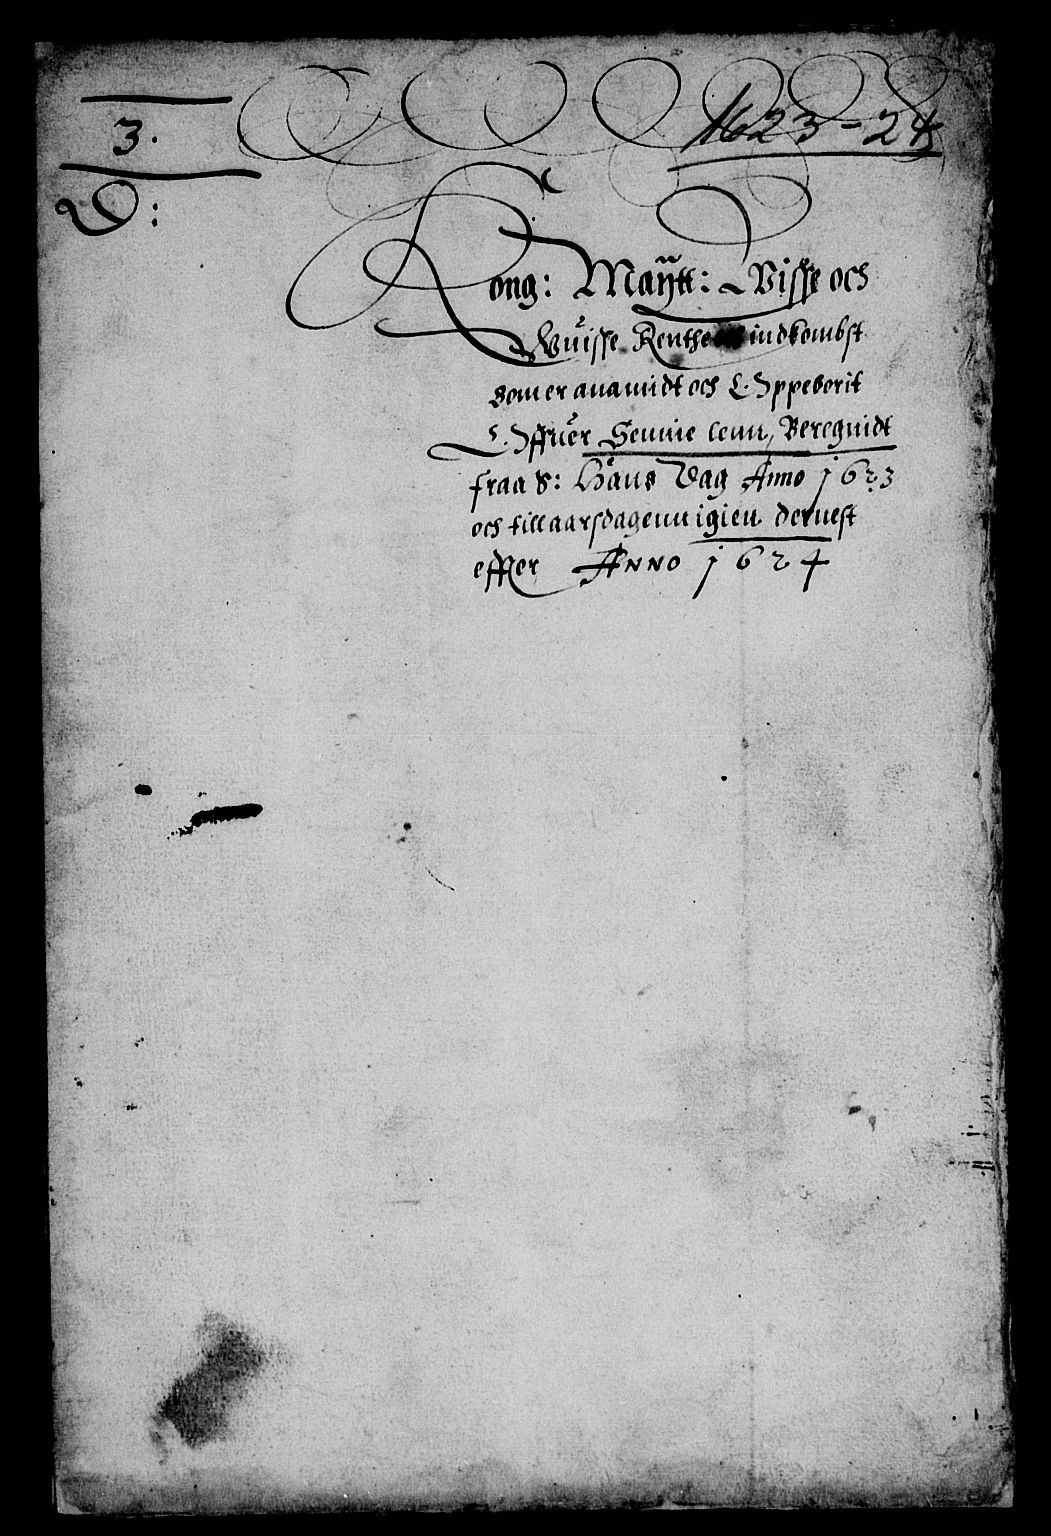 3.
1623-24
D:
Kong: Maÿtt: Visse och
Wuisse Renthe indkombst
som er anamidt och Oppeborit
Offuer Semie lenn, Beregnidt
fraa S: Hans Dag Anno 1623
och till aarsdagenn igien dernest
effter Anno 1624